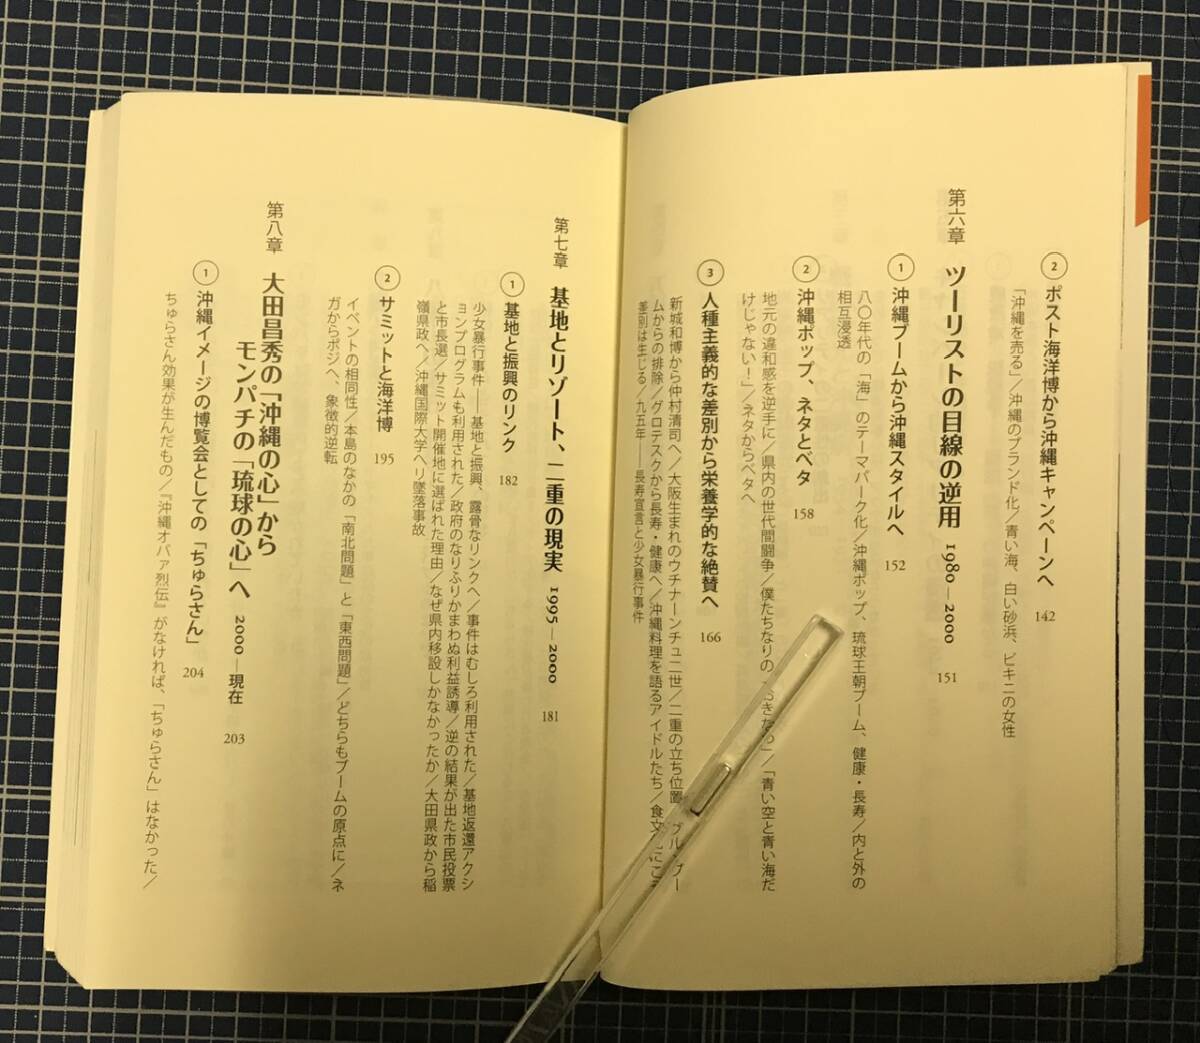 ② ポスト海洋博から沖縄キャンペーンへ 142
「沖縄を売る」／沖縄のブランド化／青い海、白い砂浜、ビキニの女性
第六章 ツーリストの目線の逆用 1980—2000 151
① 沖縄ブームから沖縄スタイルへ 152
八〇年代の「海」のテーマパーク化／沖縄ポップ、琉球王朝ブーム、健康・長寿／内と外の
相互浸透
② 沖縄ポップ、ネタとベタ 158
地元の違和感を逆手に／県内の世代間闘争／僕たちなりの「おきなわ」／「青い空と青い海だ
けじゃない！」／ネタからベタへ
③ 人種主義的な差別から栄養学的な絶賛へ 166
新城和博から仲村清司へ／大阪生まれのウチナーンチュ二世／二重の立ち位置／ブル
ムからの排除／グロテスクから長寿・健康へ／沖縄料理を語るアイドルたち／食文化にこそ
差別は生じる／九五年——長寿宣言と少女暴行事件
第七章 基地とリゾート、二重の現実 1995—2000 181
① 基地と振興のリンク 182
少女暴行事件——基地と振興、露骨なリンクへ／事件はむしろ利用された／基地返還アクシ
ョンプログラムも利用された／政府のなりふりかまわぬ利益誘導／逆の結果が出た市民投票
と市長選／サミット開催地に選ばれた理由／なぜ県内移設しかなかったか／大田県政から稲
嶺県政へ／沖縄国際大学ヘリ墜落事故
② サミットと海洋博 195
イベントの相同性／本島のなかの「南北問題」と「東西問題」／どちらもブームの原点に／ネ
ガからポジへ、象徴的逆転
第八章 大田昌秀の「沖縄の心」から
モンパチの「琉球の心」へ 2000—現在 203
① 沖縄イメージの博覧会としての「ちゅらさん」 204
ちゅらさん効果が生んだもの／『沖縄オバァ烈伝』がなければ、「ちゅらさん」はなかった／